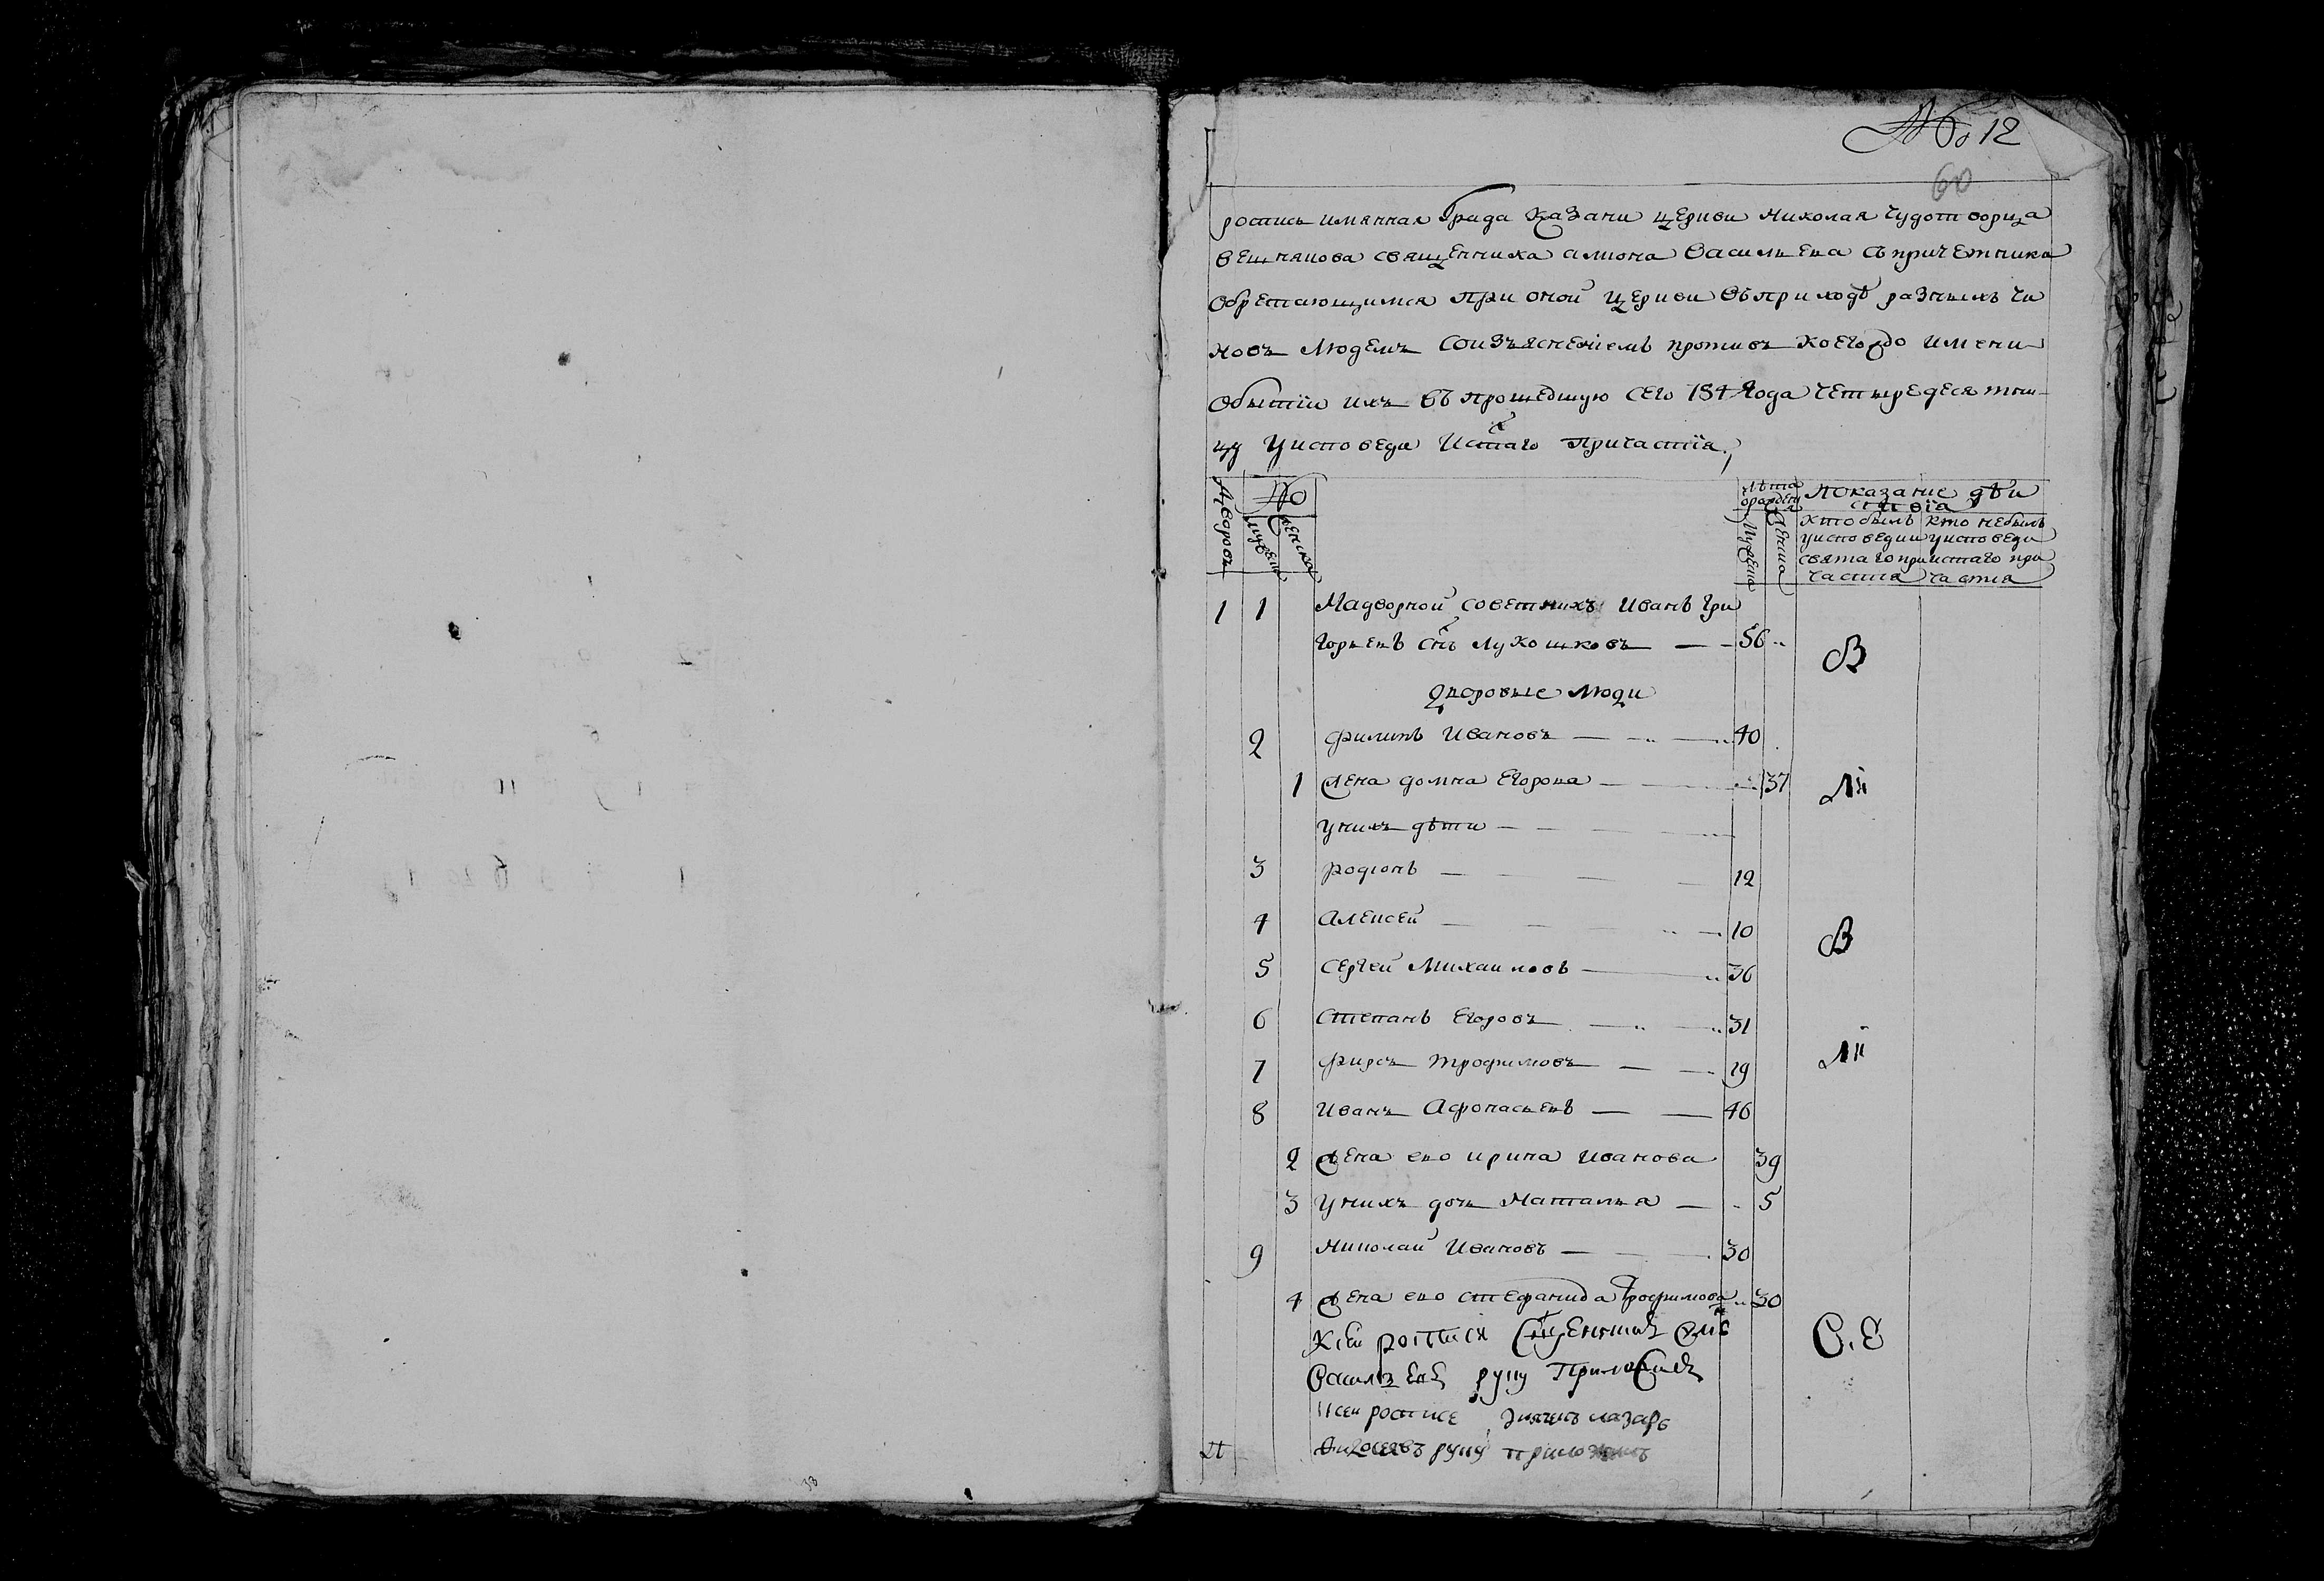 № 12
60
роспись имянная Града Казани церкви Николая Чудотворца
Вешнякова священника Симона Васильева съ причетники
обретающимся при оной церкви въ приходѣ разныхъ чи
новъ людемъ со изъяснениемъ противъ коегождо имени
о бытии ихъ въ прошедшую сего года четыредесятни
цу у исповеди и стаго причастїя
Дворовъ
№
мужеска
женска
Лѣта
от рождени
я
мужеска
женска
Показание дѣй
ствїа
кто былъ
у исповеди и
святаго при
частия
кто небылъ
у исповеди
и стаго при
частия
1 1 Надворной советникъ Иванъ Гри
горьевъ снъ Лукошковъ 56 В
дворовые люди
2 Филипъ Ивановъ 40
1 жена домна Егорова 37
у нихъ дѣти
3 родионъ 12
4 Алексей 10 В
5 Сергей Михаиловъ 36
6 Степанъ Егоровъ 31
7 Фирсъ Трофимовъ 19
8 Иванъ Афонасьевъ 46
2 жена ево ирина Иванова 39
3 у нихъ дочь Наталья 5
9 Николай Ивановъ 30
4 жена ево стефанида Трофимова 30
К сей росписи Сщенникъ
Васильевъ руку Приложилъ
К сей росписе лазарь
руку приложилъ